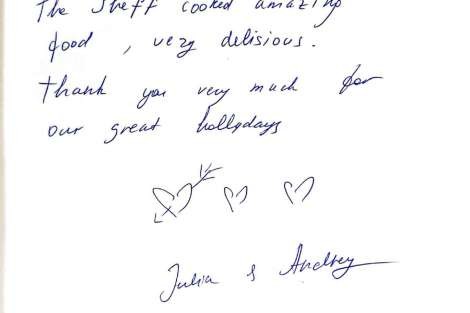 The Sheff cooked amazing
food , very delisious.
Thank you very much for
our great hollydays
Julia & Andrey